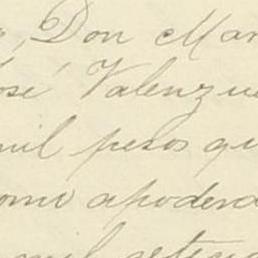 Don Mar
osé Valenzue
mil pesos qu
omo apodera
mil seteci